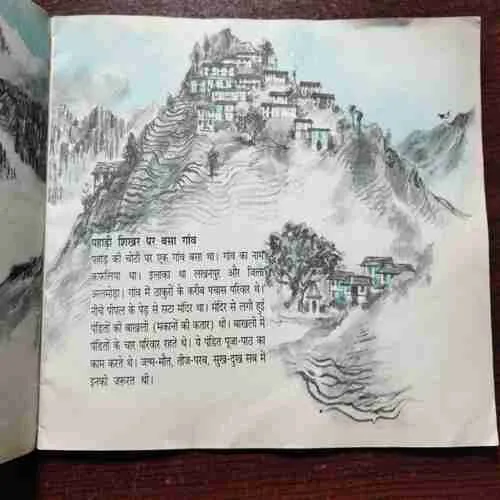 पहाड़ी शिखर पर बसा गांव
पहाड़ की चोटी पर एक गांव बसा था। गांव का नाम
काफलिया था। इलाका था लखनपुर और जिला
अल्मोड़ा। गांव में ठाकुरों के करीब पचास परिवार थे।
नीचे पीपल के पेड़ से सटा मंदिर था। मंदिर से लगी हुई
पंडितों की बाखली (मकानों की कतार) थी। बाखली में
पंडितों के चार परिवार रहते थे। ये पंडित पूजा-पाठ का
काम करते थे। जन्म-मौत, तीज-परब, सुख-दुख सब में
इनकी जरूरत थी।